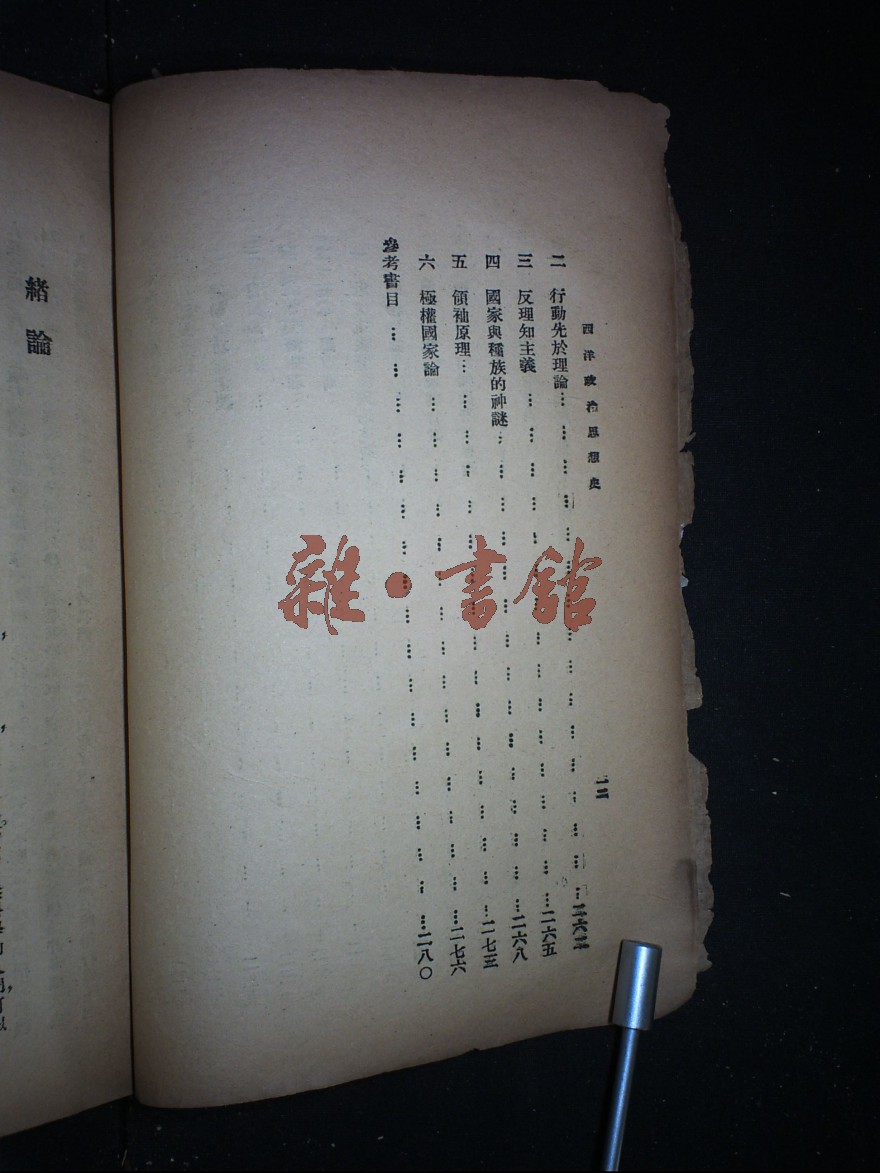 西洋政治思想史 一二
二 行動先於理論…………
三 反理知主義…………二六五
四 國家與種族的神謎…………二六八
五 領袖原理…………二七三
六 極權國家論…………二七六
參考書目…………二八〇
緒論
雜·書館